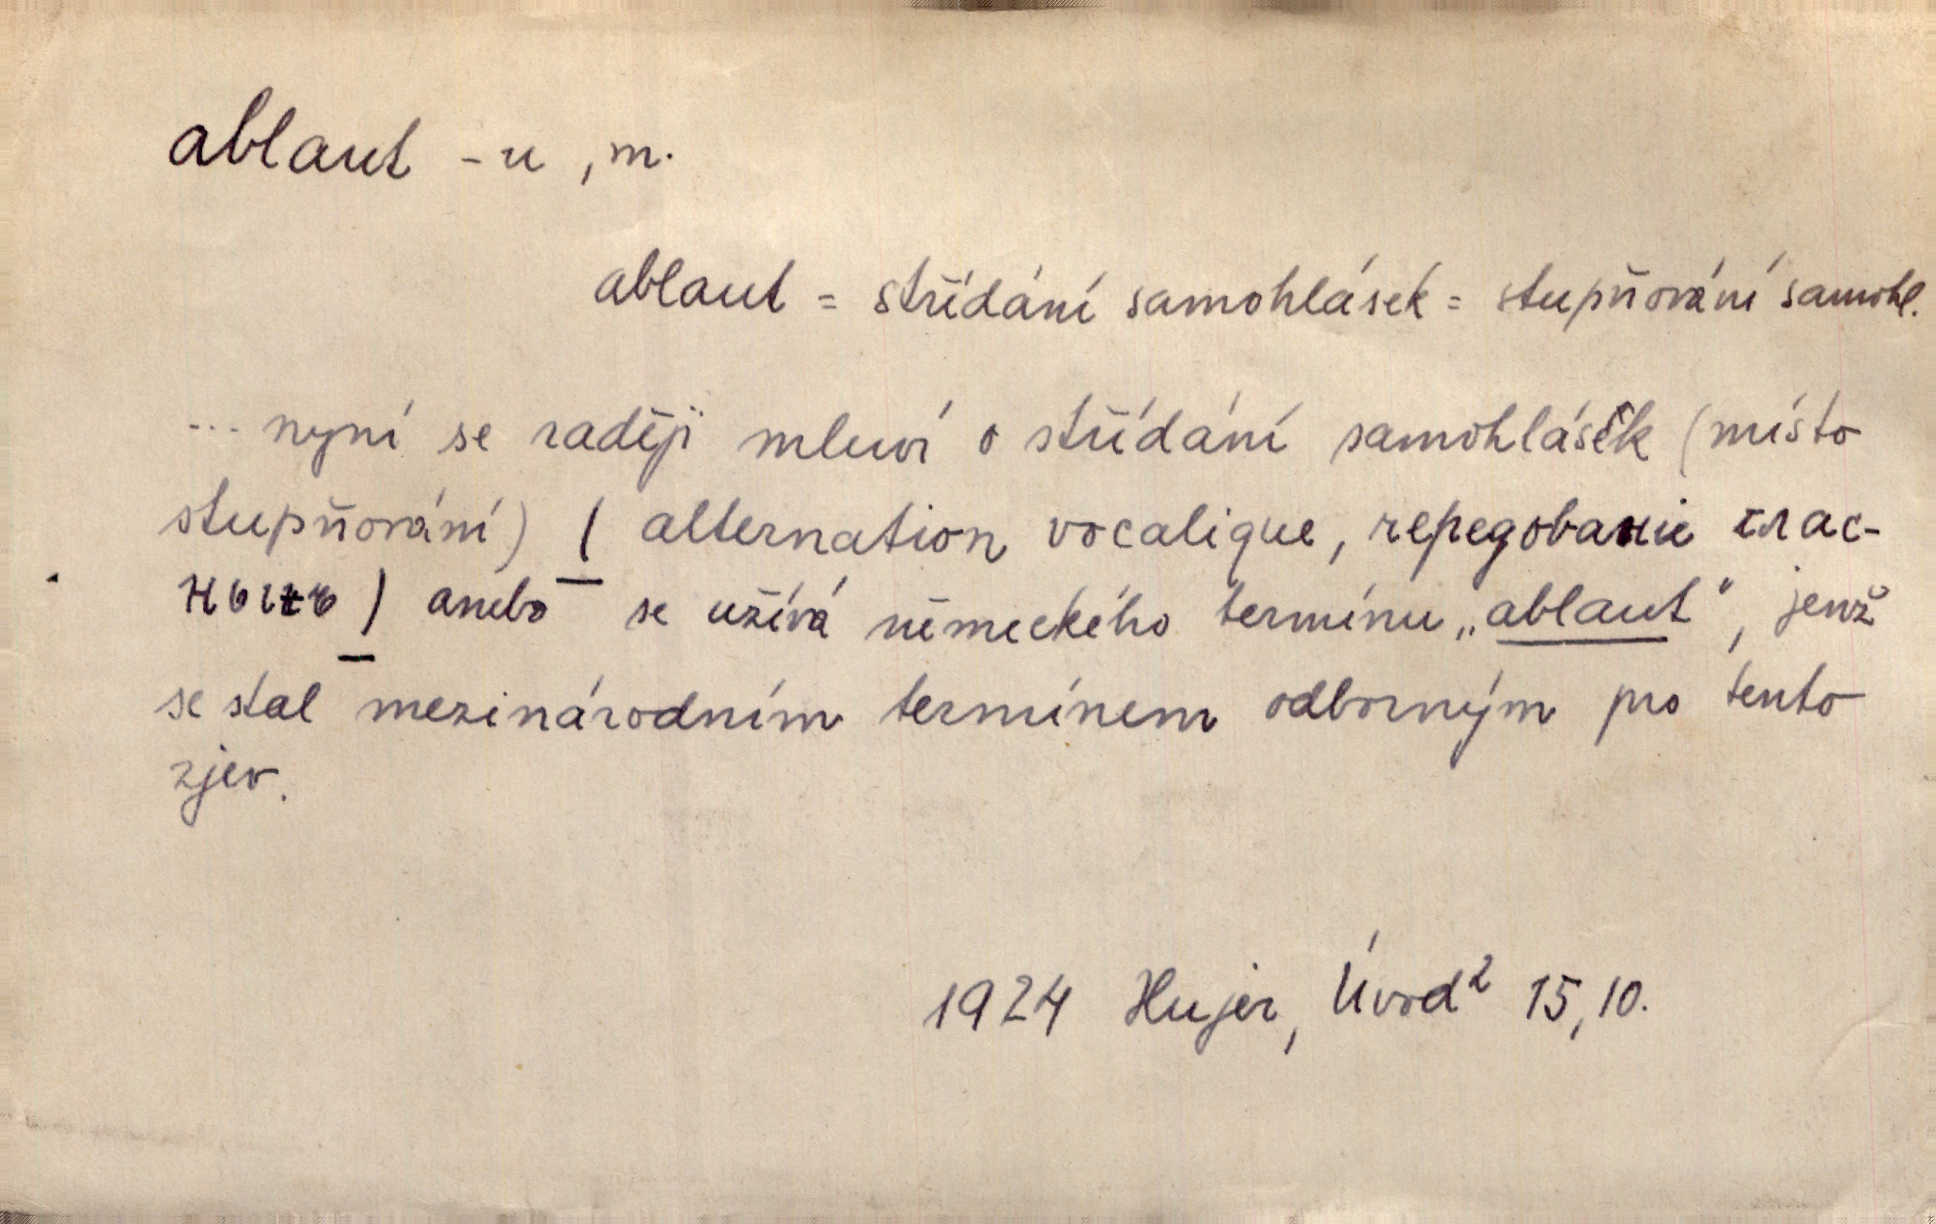 ablaut -u, m.
ablaut = střídání samohlásek = stupňování samohl.
... nyní se raději mluví o střídání samohlásek (místo
stupňování) ( alternation vocalique, чередованiе глас-
ныхъ ) anebo se užívá německého termínu „ablaut“, jenž
se stal mezinárodním termínem odborným pro tento
zjev.
1924 Hujer, Úvod² 15,10.